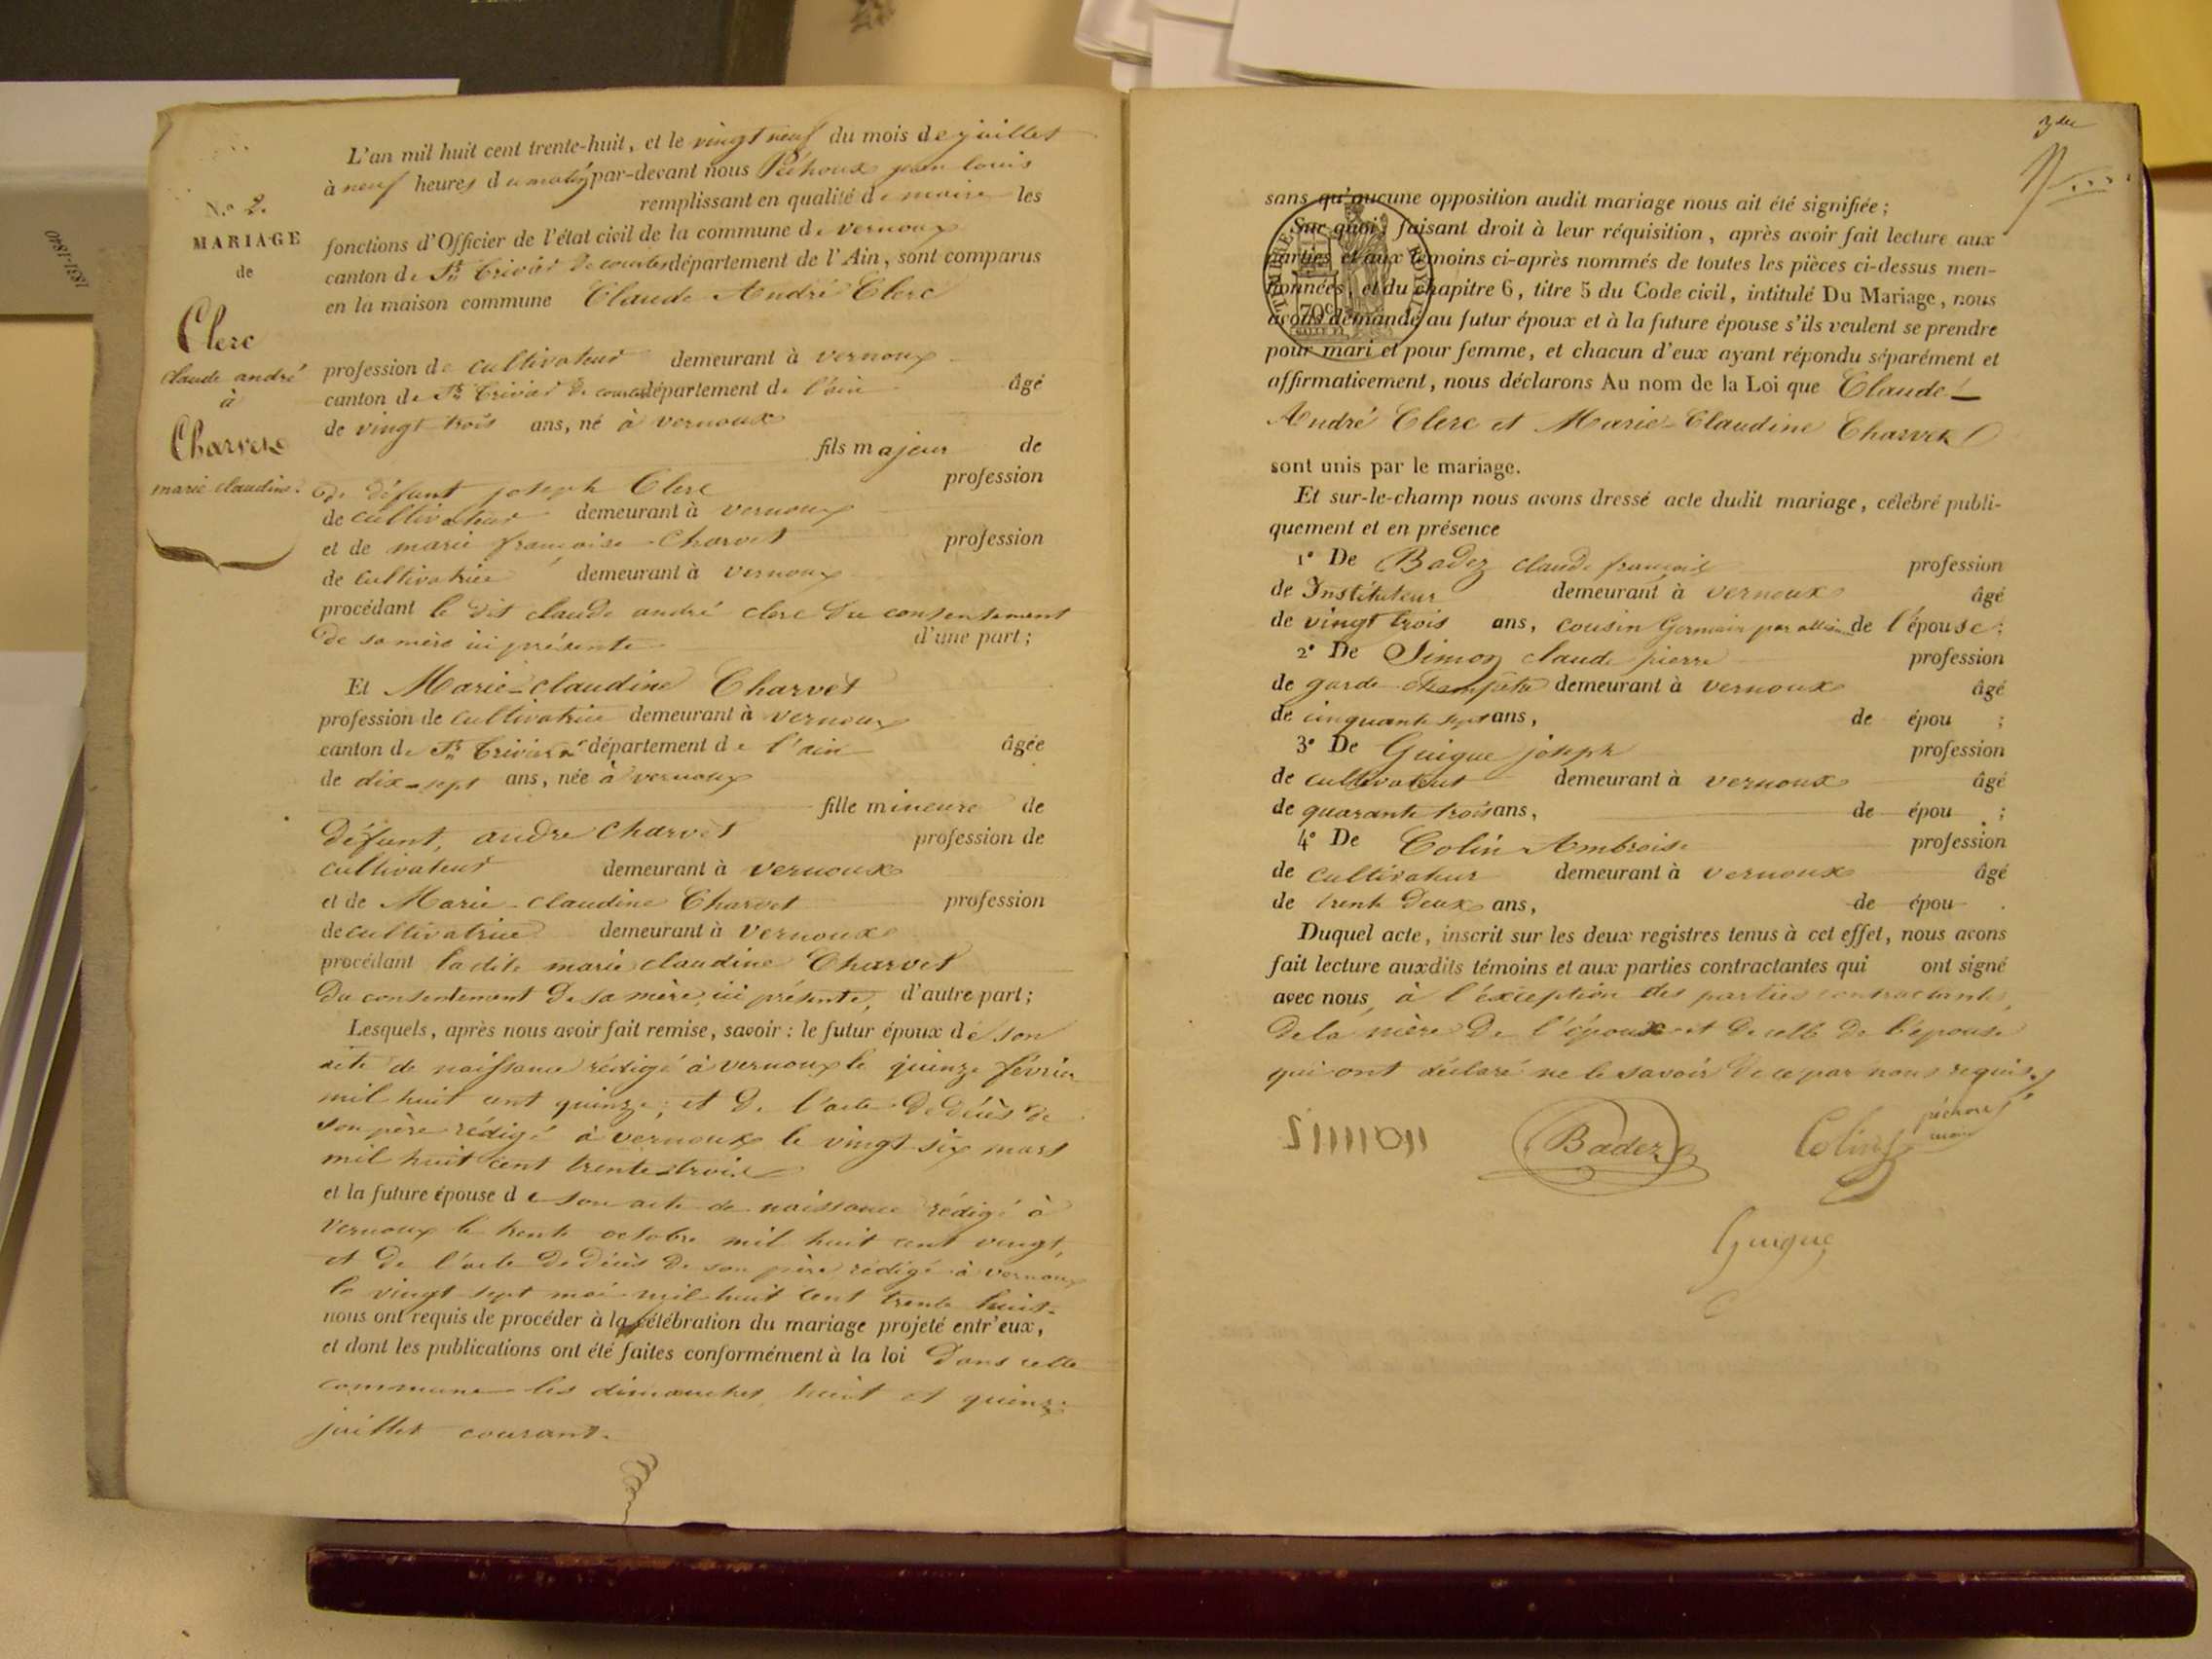 1831-1840
N.o 2.
MARIAGE
de
Clerc
claude andré
à
Charvet
marie claudine.
L'an mil huit cent trente-huit, et le vingt neuf du mois de juillet
à neuf heures du matin par-devant nous Péchoux jean louis
remplissant en qualité de maire les
fonctions d'Officier de l'état civil de la commune de vernoux
canton de St trivier de courtes département de l'Ain, sont comparus
en la maison commune Claude André Clerc
profession de cultivateur demeurant à vernoux
canton de St trivier de courtes département de l'ain âgé
de vingt trois ans, né à vernoux
fils majeur de
de défunt joseph Clerc profession
de cultivateur demeurant à vernoux
et de marie françoise Charvet profession
de cultivatrice demeurant à vernoux
procédant le dit claude andré clerc du consentement
de sa mère ici présente d'une part;
Et Marie-claudine Charvet
profession de cultivatrice demeurant à vernoux
canton de St trivier département de l'ain âgée
de dix-sept ans, née à vernoux
fille mineure de
défunt, andre Charvet profession de
cultivateur demeurant à vernoux
et de Marie-claudine Charvet profession
de cultivatrice demeurant à vernoux
procédant la dite marie claudine Charvet
du consentement de sa mère, ici présente, d'autre part;
Lesquels, après nous avoir fait remise, savoir : le futur époux de son
acte de naissance rédigé à vernoux le quinze février
mil huit cent quinze; et de l'acte de décès de
son père rédigé à vernoux le vingt-six mars
mil huit cent trente-trois
et la future épouse de son acte de naissance rédigé à
vernoux le trente octobre mil huit cent vingt,
et de l'acte de décès de son père rédigé à vernoux
le vingt sept mai mil huit cent trente huit.
nous ont requis de procéder à la célébration du mariage projeté entr'eux,
et dont les publications ont été faites conformément à la loi dans cette
commune les dimanches huit et quinze
juillet courant.
sans qu'aucune opposition audit mariage nous ait été signifiée;
Sur quoi, faisant droit à leur réquisition, après avoir fait lecture aux
parties et aux témoins ci-après nommés de toutes les pièces ci-dessus men-
tionnées, et du chapitre 6, titre 5 du Code civil, intitulé Du Mariage, nous
avons demandé au futur époux et à la future épouse s'ils veulent se prendre
pour mari et pour femme, et chacun d'eux ayant répondu séparément et
affirmativement, nous déclarons Au nom de la Loi que Claude
André Clerc et Marie-Claudine Charvet
sont unis par le mariage.
Et sur-le-champ nous avons dressé acte dudit mariage, célébré publi-
quement et en présence
1o De Badez claude françois profession
de Instituteur demeurant à vernoux âgé
de vingt trois ans, cousin Germain par alliance de l'épouse;
2o De Simon claude pierre profession
de garde champêtre demeurant à vernoux âgé
de cinquante sept ans, de épou ;
3o De Guigue joseph profession
de cultivateur demeurant à vernoux âgé
de quarante trois ans, de épou ;
4o De Colin Ambroise profession
de cultivateur demeurant à vernoux âgé
de trente deux ans, de épou .
Duquel acte, inscrit sur les deux registres tenus à cet effet, nous avons
fait lecture auxdits témoins et aux parties contractantes qui ont signé
avec nous, à l'exception des parties contractantes,
de la mère de l'époux et de celle de l'épouse
qui ont déclaré ne le savoir de ce par nous requis.
Badez Colin péchoux
maire
Guigue
TIMBRE ROYAL
70c